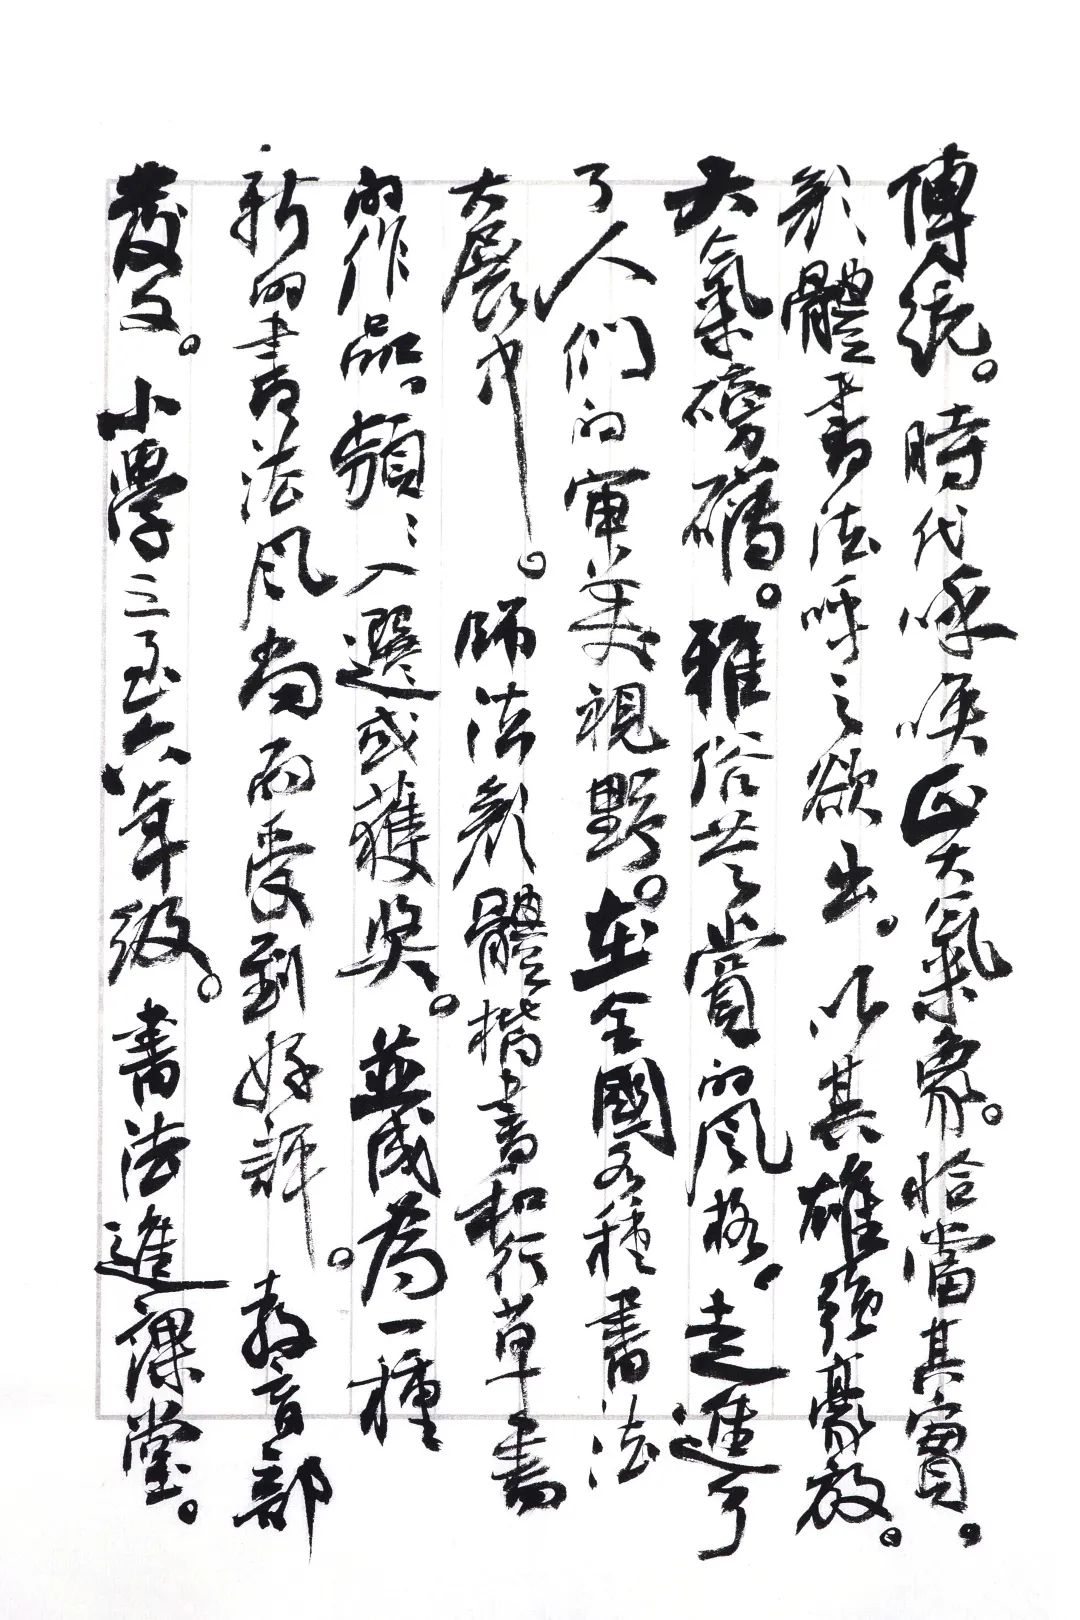 傳統。時代呼喚正大氣象。恰當其實。
顏體書法呼之欲出。以其雄強豪放。
大氣磅礴。雅俗共賞的風格。走進了
了人們的审美視野。在全國各種書法
大展中。師法顏體楷書和行草書
的作品。頻〻入選或獲奬。並成為一種
新的書法風尚而受到好評。教育部
發文。小學三至六年級。書法進課堂。